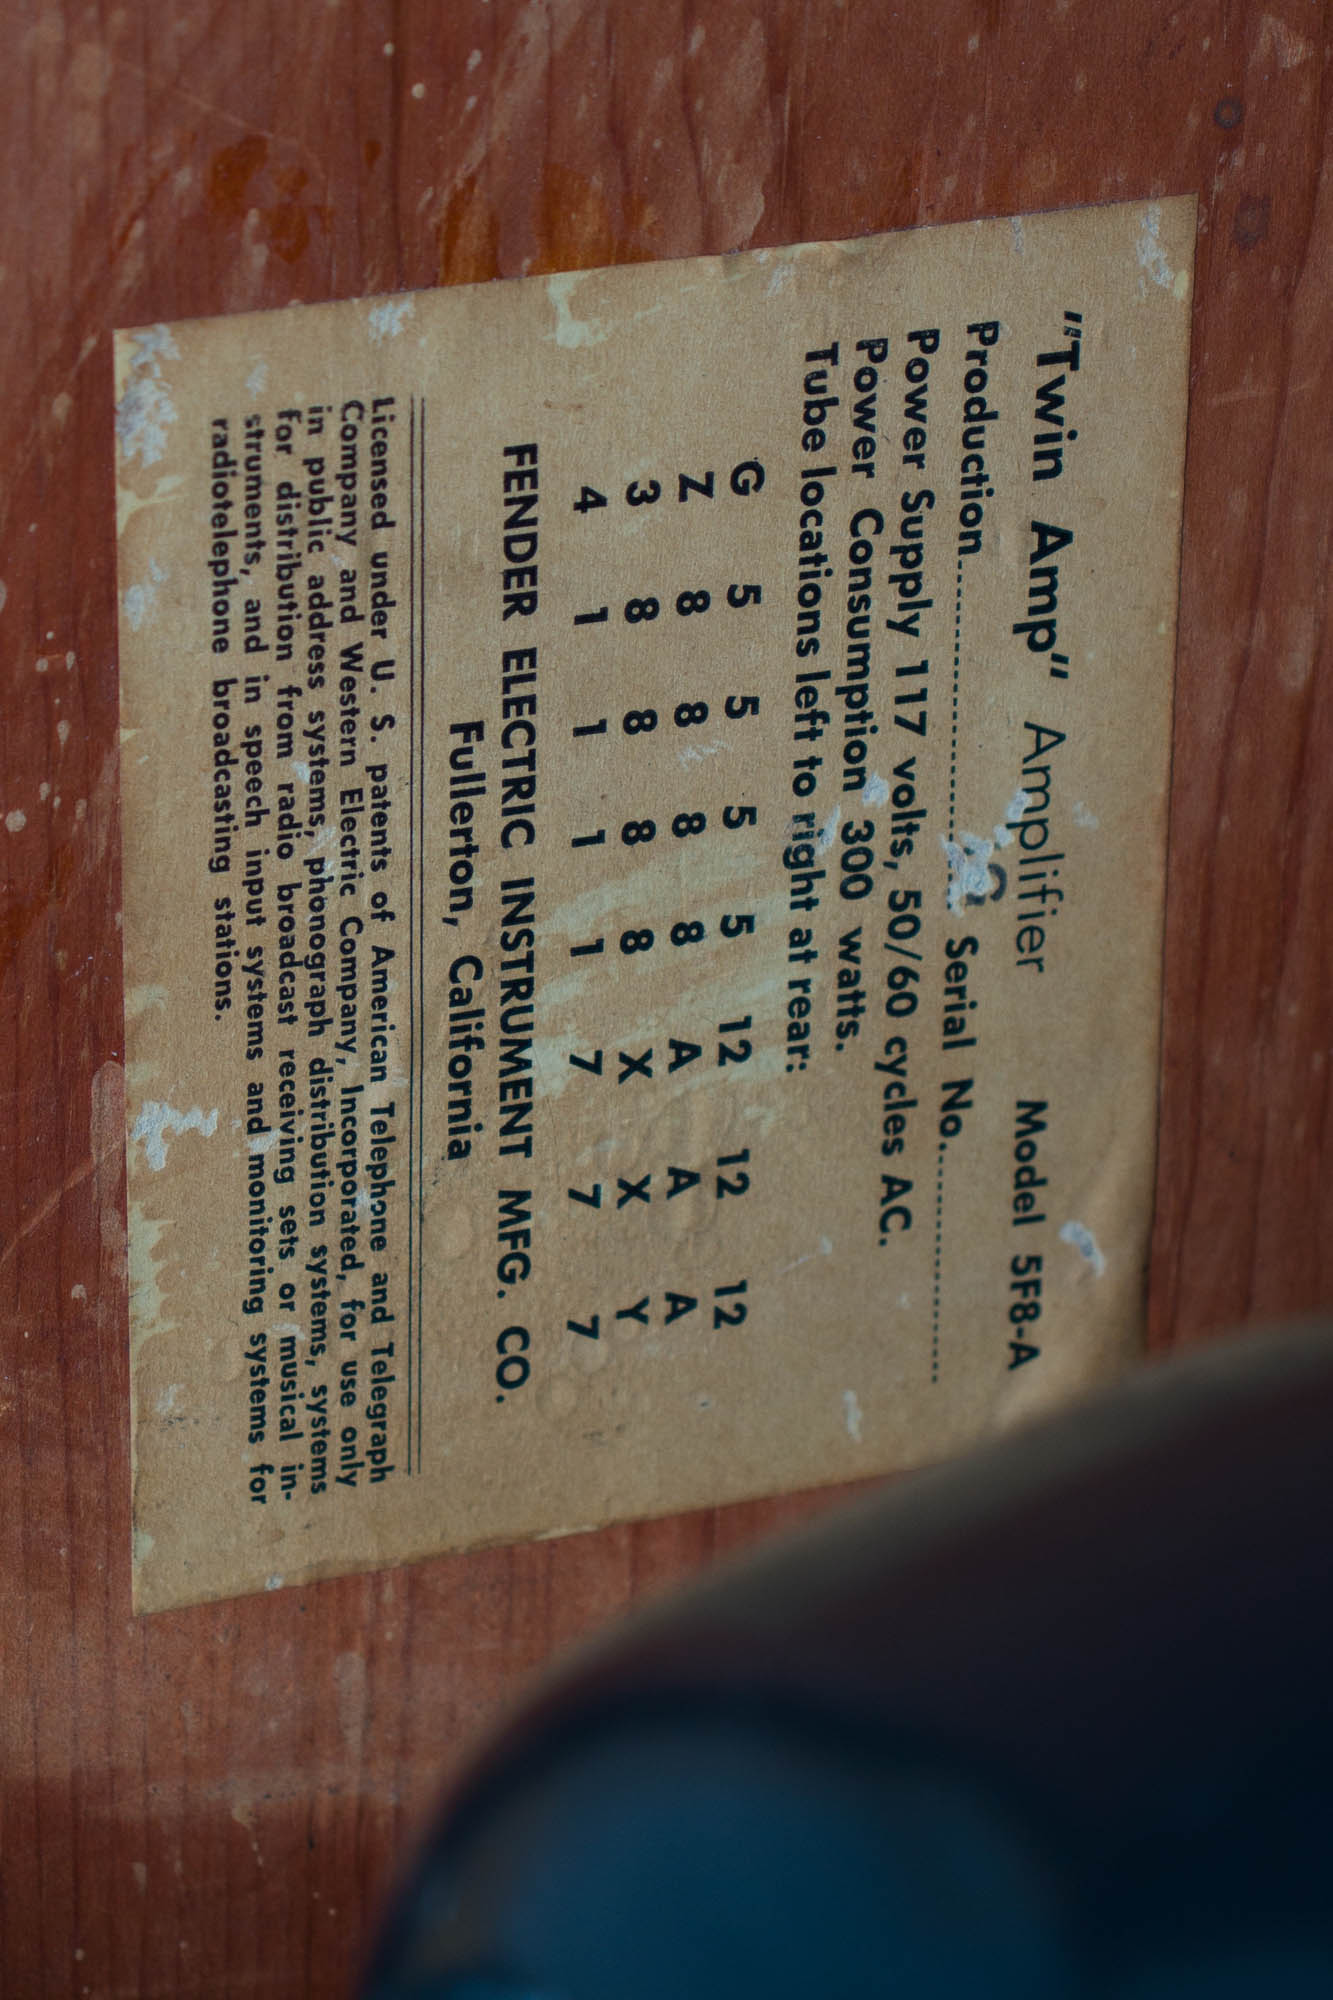 "Twin Amp" Amplifier Model 5F8-A
Production Serial No.
Power Supply 117 volts, 50/60 cycles AC.
Power Consumption 300 watts.
Tube locations left to right at rear:
G 5 5 5 5 12 12 12
Z 8 8 8 8 A A A
3 8 8 8 8 X X Y
4 1 1 1 1 7 7 7
FENDER ELECTRIC INSTRUMENT MFG. CO.
Fullerton, California
Licensed under U. S. patents of American Telephone and Telegraph
Company and Western Electric Company, Incorporated, for use only
in public address systems, phonograph distribution systems, systems
for distribution from radio broadcast receiving sets or musical in-
struments, and in speech input systems and monitoring systems for
radiotelephone broadcasting stations.